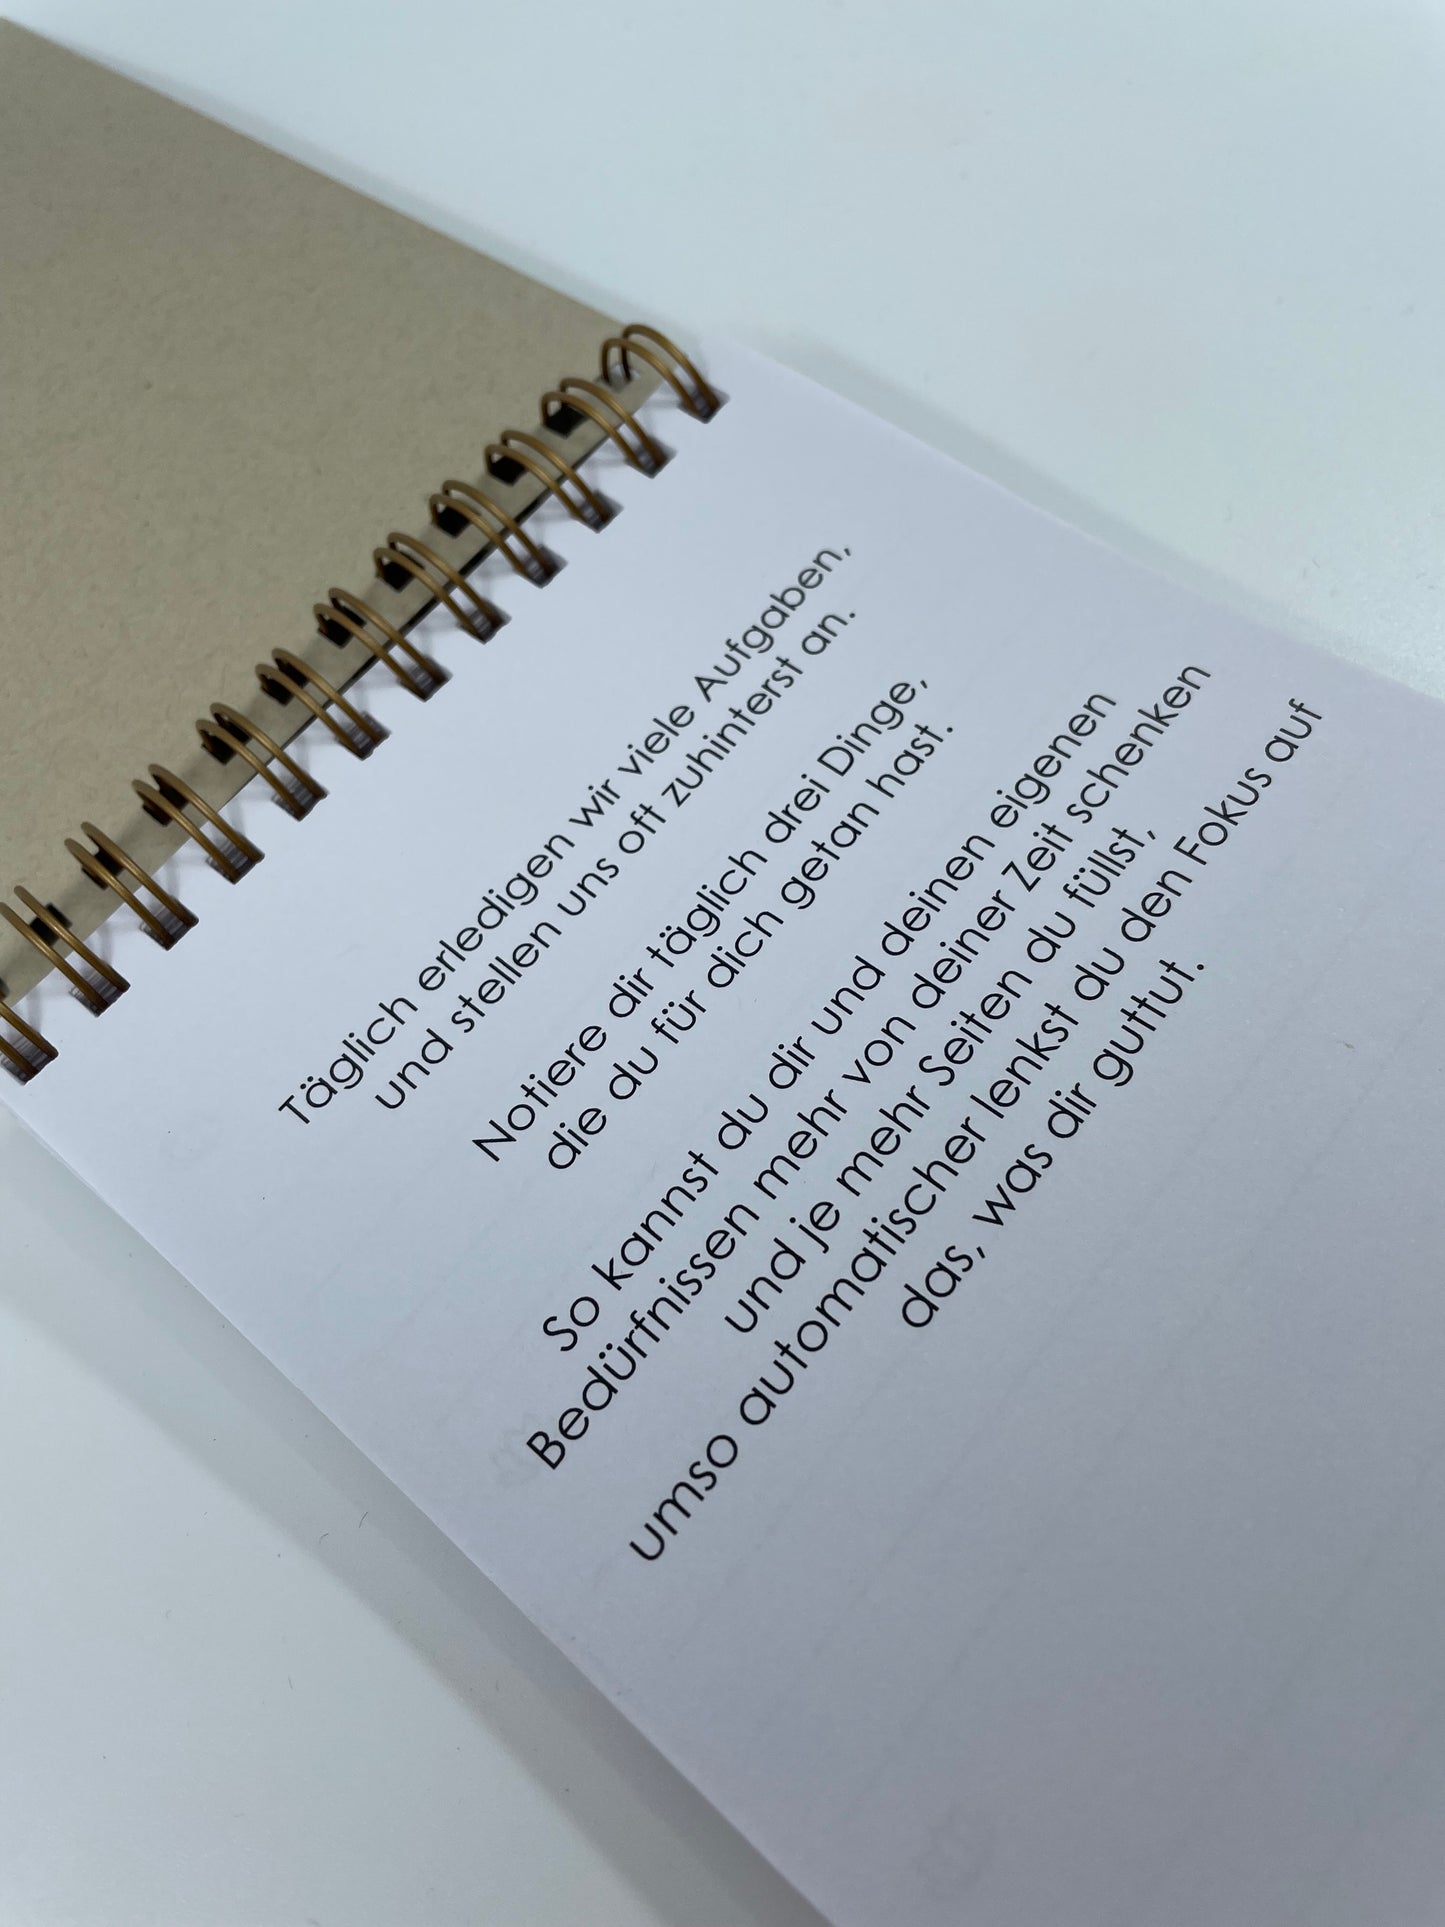 Täglich erledigen wir viele Aufgaben,
und stellen uns oft zuhinterst an.
Notiere dir täglich drei Dinge,
die du für dich getan hast.
So kannst du dir und deinen eigenen
Bedürfnissen mehr von deiner Zeit schenken
und je mehr Seiten du füllst,
umso automatischer lenkst du den Fokus auf
das, was dir guttut.